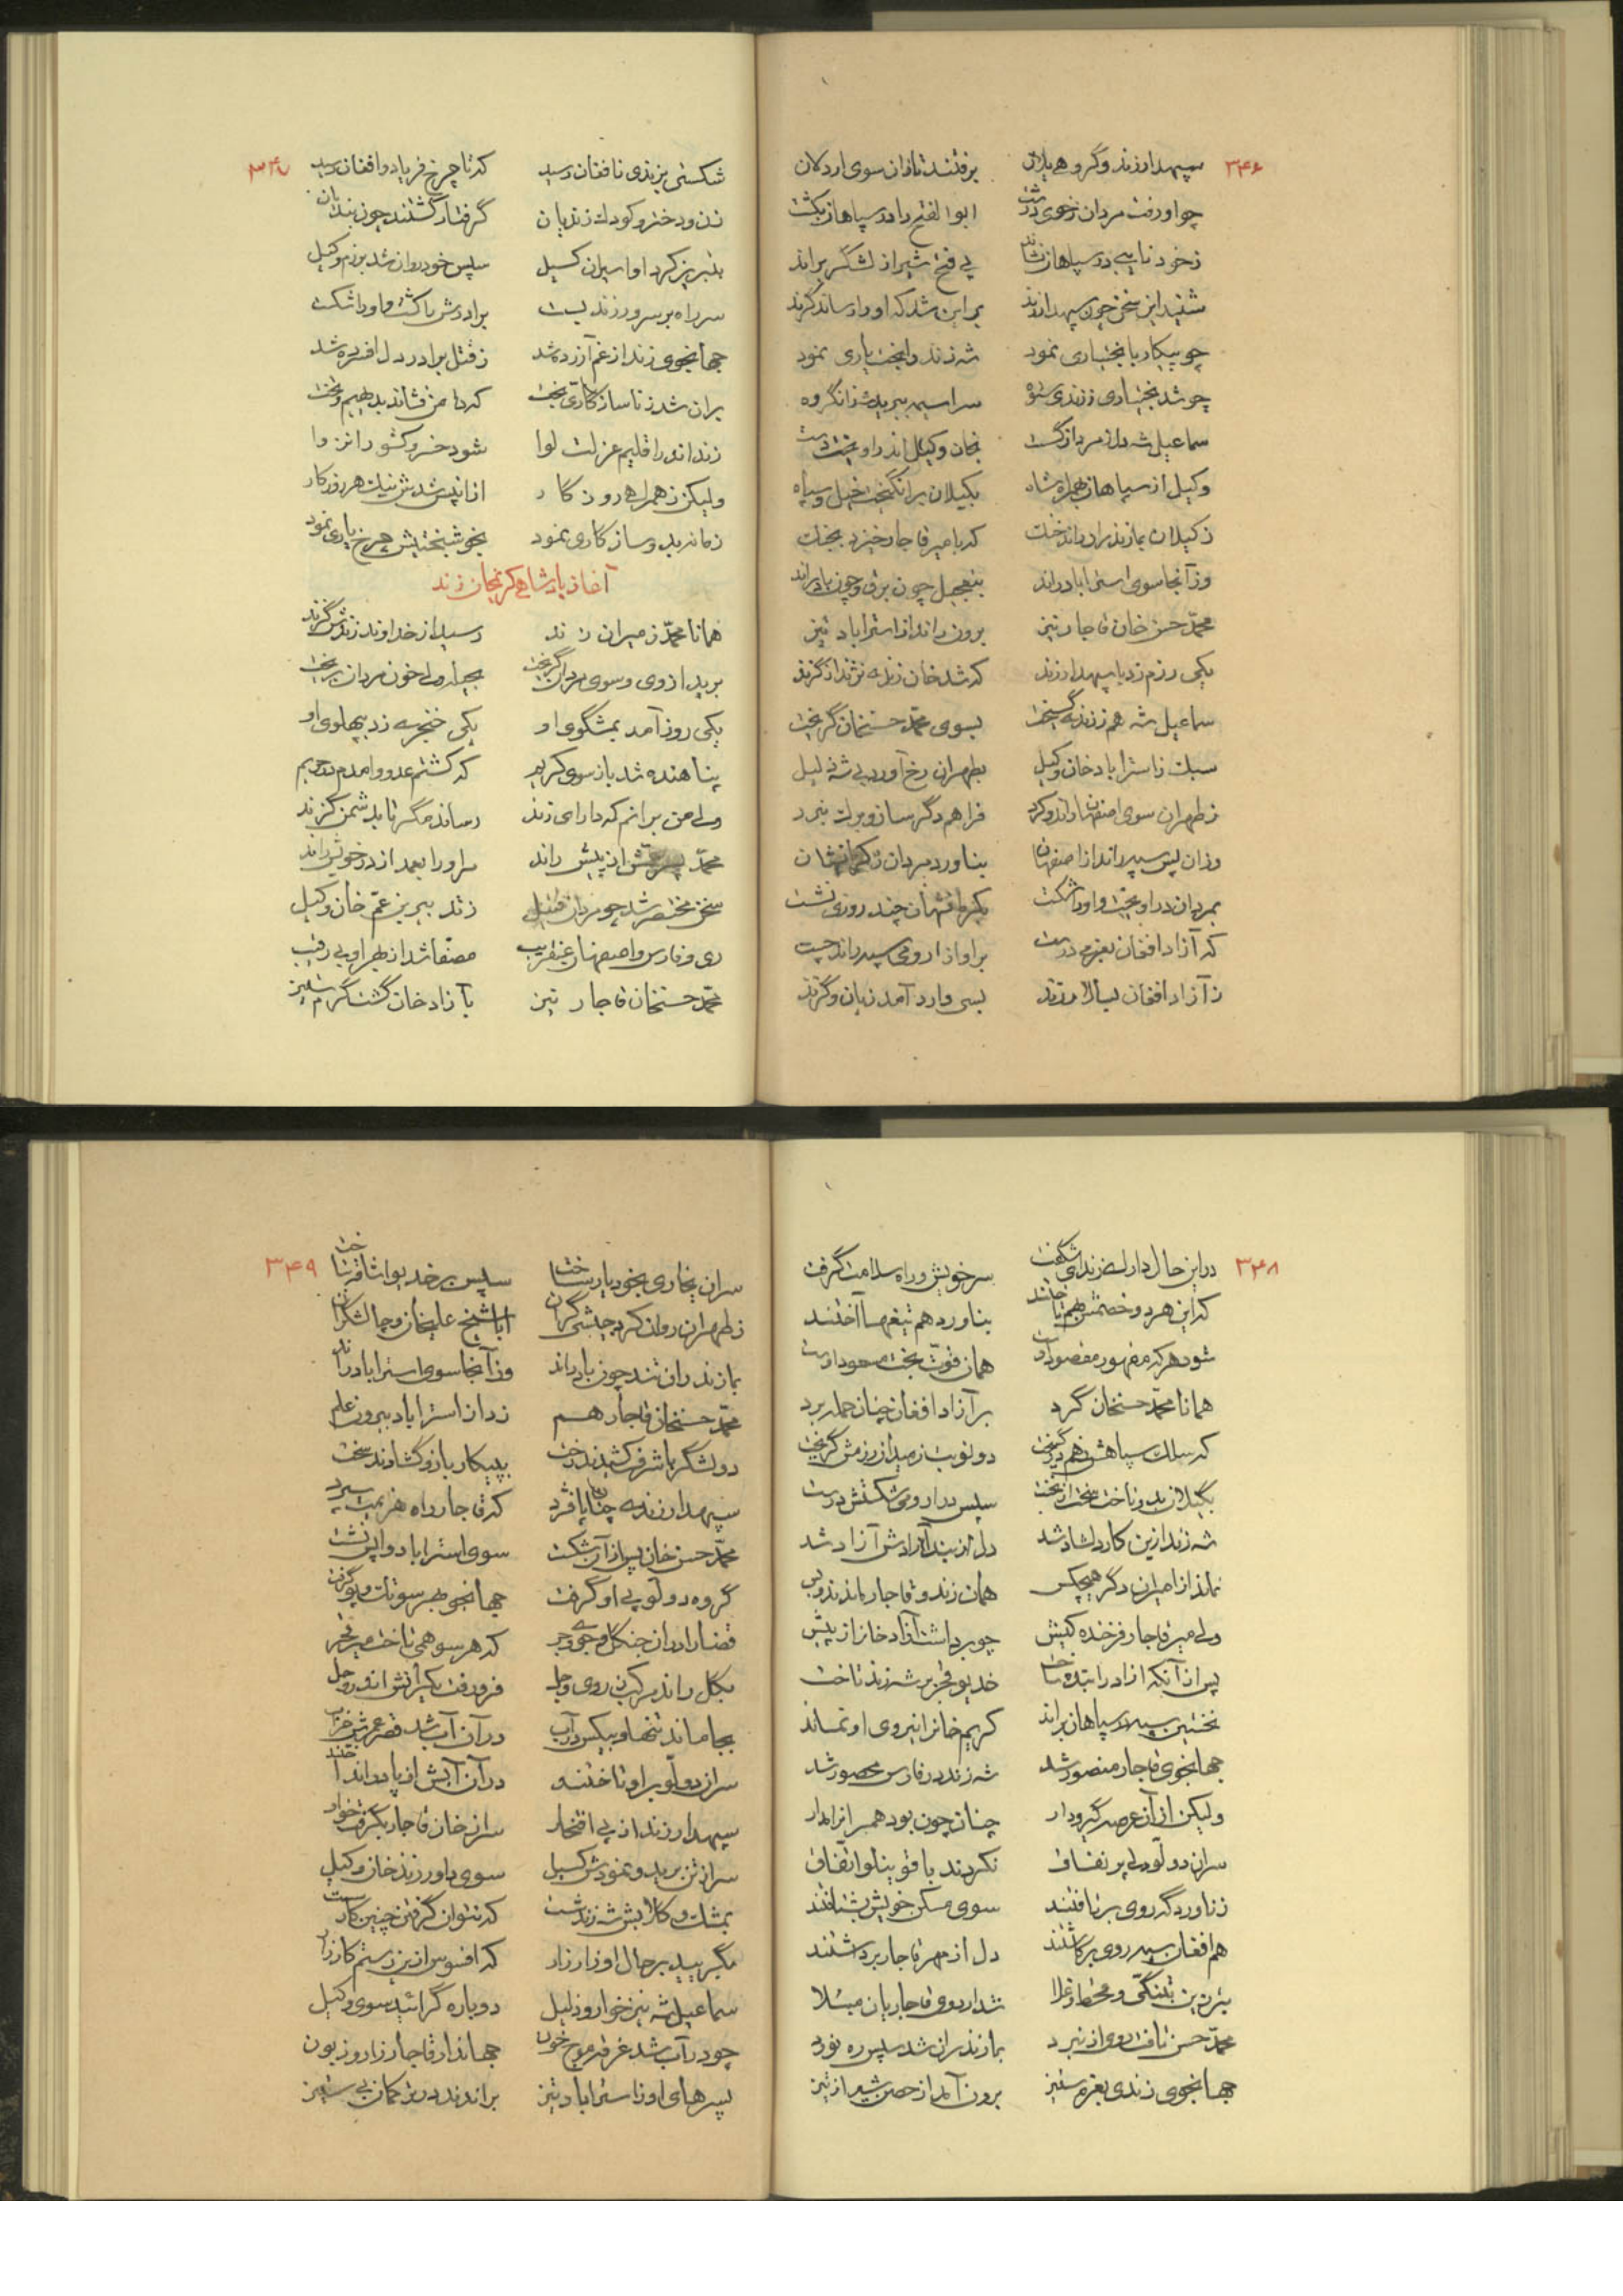 ۳۴۶
سپهدار زند و گروه یلان برفتند تازان سوی اردلان
چو او رفت مردان ز خوی درشت ابوالفتح را در سپاهان بکشت
ز خود نایبی در سپاهان نشاند پی فتح شیراز لشگر براند
شنید این سخن چون سپهدار زند بر این شد که او را رساند گزند
چو پیکار با بختیاری نمود شه زند را بخت یاری نمود
چو شد بختیاری ز زندی ستوه سراسیمه ببرید شه زان گروه
سماعیل شه دل ز مردان گسست بخان وکیل اندر آویخت دست
وکیل از سپاهان بهمراه شاه بگیلان برانگیخت خیل و سپاه
ز گیلان بمازندران راند خنگ که با میر قاجار خیزد بجنگ
وز آنجا سوی استراباد راند بتعجیل چون برق و چون باد راند
محمّد حسن خان قاجار نیز برون راند از استراباد تیز
یکی رزم زد با سپهدار زند که شد خان زندیه نژند از گزند
سماعیل شه هم ز زندیه گسیخت بسوی محمّد حسنخان گریخت
سبک ز استراباد خان وکیل بطهران رخ آورد بی شه ذلیل
ز طهران سوی اصفهان راند و کرد فراهم دگر ساز و برگ نبرد
وزان پس سپه راند از اصفهان بناورد مردان ز کرمانشهان
بمردان در آویخت و او را شکست بکرمانشهان چند روزی نشست
که آزاد افغان بعزم درست بر او از ارومی سپه راند چست
ز آزاد افغان بسالار زند بسی وارد آمد زیان و گزند
۳۴۷
شکستی بزندی ز افغان رسید که تا چرخ فریاد و افغان رسید
زن و دختر و کودک زندیان گرفتار گشتند چون بندیان
بتبریز کرد او اسیران گسیل سپس خود روان شد برزم وکیل
سر راه بر سرور زند بست برادرش را کشت و او را شکست
جهانجوی زند از غم آزرده شد ز قتل برادر دل افسرده شد
بران شد ز ناسازگاری بخت که دامن فشاند بدیهیم و تخت
زند اندر اقلیم عزلت لوا شود خسرو کشور انزوا
ولیکن ز همراهی روزگار از آن پس شدش نیک هر روز کار
زمانه بدو سازگاری نمود بخوشبختیش چرخ یاری نمود
آغاز پادشاهی کریمخان زند
همانا محمّد ز میران زند رسید از خداوند زندش گزند
برید از وی و سوی مردان گریخت بحیلت ولی خون مردان بریخت
یکی روز آمد بمشگوی او یکی خنجرسه زد بپهلوی او
پناهنده شد باز سوی کریم که کشتم عدو و آمدم در حریم
ولی من برانم که دارای زند رساند مگر تا بدشمن گزند
محمّد از پیش راند مر او را بعمد از در خویش راند
سخن مختصر شد چو مردان قتیل ز تدبیر بن عمّ خان وکیل
ری و فارس و اصفهان عنقریب مصفّا شد از بهر او بی رقیب
محمّد حسنخان قاجار نیز بآزاد خان گشت گرم ستیز
۳۴۸
در این حال دارای زند ای شگفت سر خویش و راه سلامت گرفت
که این هر دو خصمش بهم تاختند بناورد هم تیغها آختند
شود هر که مقهور مقصود اوست همان قوّت بخت مسعود اوست
همانا محمّد حسنخان گرد بر آزاد افغان چنان حمله برد
که سلک سپاهش ز هم در گسیخت دو نوبت ز میدان رزمش گریخت
بگیلان بدو تاخت سخت از نخست سپس در ارومی شکستش درست
شه زند ازین کار دلشاد شد دل از بند آزادش آزاد شد
نماند از امیران دگر هیچکس همان زند و قاجار ماندند و بس
ولی میر قاجار فرخنده کیش چو برداشت آزاد خان از پیش
پس از آنکه آزاد را بنده ساخت خدیو فجر بر شه زند تاخت
نخستین سپه بر سپاهان براند کریم خان را نیروی او نماند
جهانجوی قاجار منصور شد شه زند در فارس محصور شد
ولیکن از آن عرصه گیر و دار چنان چون بود همسر افزار
سران دولّو دلی پر نفاق نکردند با قوینلو اتّفاق
ز ناورد گه روی برتافتند سوی مسکن خویش بشتافتند
هم افغان سپه روی برگاشتند دل از مهر قاجار برداشتند
بتر زین بتنگی و قحط و غلا شد اردوی قاجاریان مبتلا
محمّد حسن تافت روی از نبرد بمازندران شد سپس ره نورد
جهانجوی زندی بعزم ستیز برون آمد از حصن شیراز تیز
۳۴۹
سران بخاری بخود یار ساخت سپس بر خدیو لشا فرشتاخت
ز طهران روان کرد جیشی گران ابا شیخ علیخان و جا لشگران
بمازندران تند چون باد راند وز آنجا سوی استراباد راند
محمّد حسنخان قاجار هم زد از استراباد بیرون علم
دو لشگر باشرف کشیدند رخت بپیکار بازو گشادند سخت
سپهدار زندیه چنان پا فشرد که قاجار راه هزیمت سپرد
محمّد حسن خان پس از آن شکست سوی استراباد واپس نشست
گروه دولّو پی او گرفت جهانجو بهر سو تک و پو گرفت
قضا را در آن جنگل و جوی و جر که هر سو همی تاخت میر فجر
بگل راند مرکب ز روی وجل فرو رفت یکرانش اندر وحل
بجا ماند تنها و بیکس در آب در آن آب شد قصر عمرش خراب
سران دولّو بر او تاختند در آن آبش از پا در انداختند
سپهدار زند از پی افتخار سر از خان قاجار بگرفت خوار
سر از تن برید و نمودش گسیل سوی داور زند خان وکیل
بمشک و گلابش شه زند شست که نتوان گرفتن چنین کار سست
بگریید بر حال او زار زار که افسوس ازین رستم کارزار
سماعیل شه نیز خوار و ذلیل دوباره گرائید سوی وکیل
چو در آب شد غرقه موج خون جهاندار قاجار زار و زبون
پسرهای او ز استراباد نیز براندند در ترکمان بی ستیز